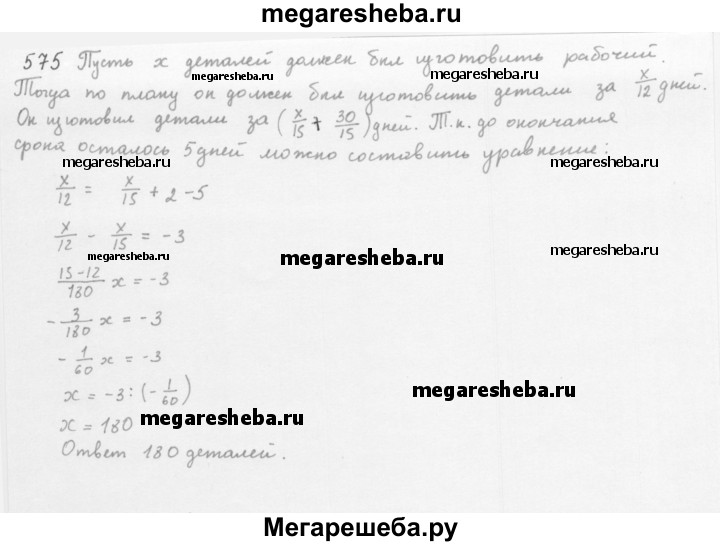 megaresheba.ru
575 Пусть x деталей должен был изготовить рабочий.
megaresheba.ru megaresheba.ru
Тогда по плану он должен был изготовить детали за x/12 дней.
Он изготовил детали за (x/15 + 30/15) дней. Т.к. до окончания
срока осталось 5 дней можно составить уравнение:
megaresheba.ru megaresheba.ru
x/12 = x/15 + 2 - 5
x/12 - x/15 = -3
megaresheba.ru megaresheba.ru megaresheba.ru
(15-12)/180 x = -3
-3/180 x = -3
megaresheba.ru
-1/60 x = -3
x = -3 : (-1/60)
x = 180
megaresheba.ru megaresheba.ru
Ответ 180 деталей.
Мегарешеба.ру